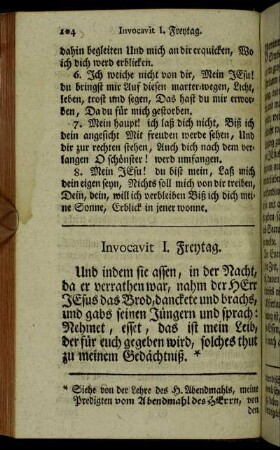 104 Invocavit I. Freytag.
dahin begleiten Und mich an dir erquicken, Wo
ich dich werd erblicken.
6. Ich weiche nicht von dir, Mein JEsu!
du bringst mir Auf diesen marter-wegen, Licht,
leben, trost und segen, Das hast du mir erwor-
ben, Da du für mich gestorben.
7. Mein haupt! ich laß dich nicht, Biß ich
dein angesicht Mit freuden werde sehen, Und
dir zur rechten stehen, Auch dich nach dem ver-
langen O schönster! werd umfangen.
8. Mein JEsu! du bist mein, Laß mich
dein eigen seyn, Nichts soll mich von dir treiben,
Dein, dein, will ich verbleiben Biß ich dich mei-
ne Sonne, Erblick in jener wonne.
Invocavit I. Freytag.
Und indem sie assen, in der Nacht,
da er verrathen war, nahm der HErr
JEsus das Brod, danckete und brachs,
und gabs seinen Jüngern und sprach:
Nehmet, esset, das ist mein Leib,
der für euch gegeben wird, solches thut
zu meinem Gedächtniß. *
* Siehe von der Lehre des H. Abendmahls, meine
Predigten vom Abendmahl des HErrn, von
den